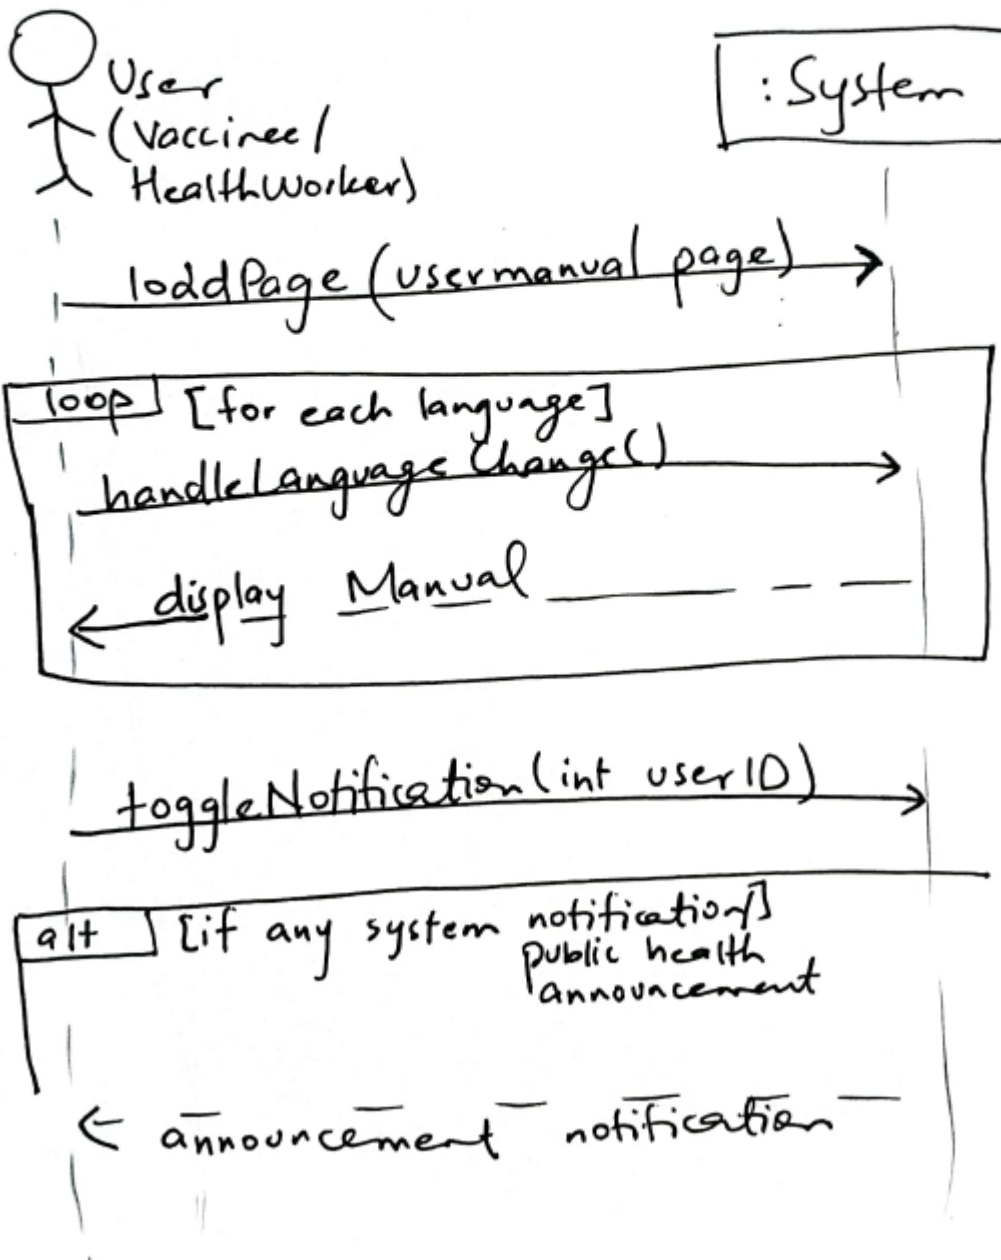 User
(Vaccinee/
HealthWorker)
:System
loadPage (usermanual page)
loop [for each language]
handleLanguageChange()
display Manual
toggleNotification(int userID)
alt [if any system notification/]
public health
announcement
announcement notification